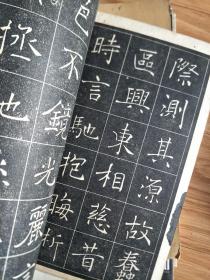 際測其源故蠢
區興東相慈昔
時言馳抱晦析
色不鏡光麗
拯地